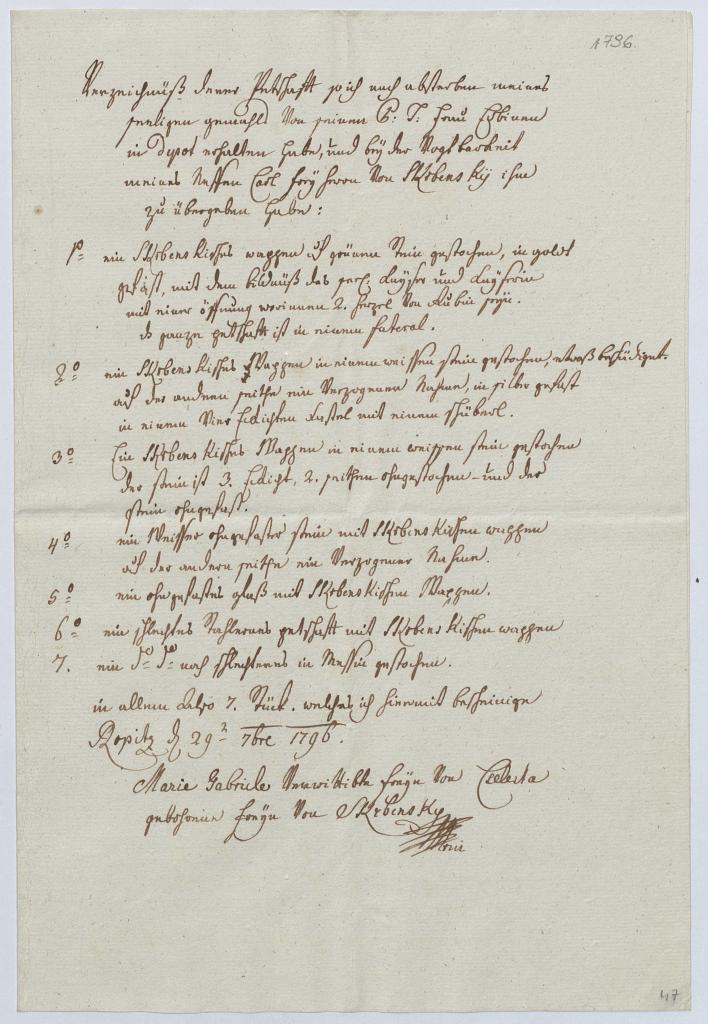 1796.
Verzeichnüß derer Petschafft so ich nach absterben meines
seeligen gemahls von seinen P: T: Frau Erbinen
in Depot erhalten habe, und bey der Vogtbarkeit
meines Neffen Carl Frey Herrn von Skrbensky ihm
zu übergeben habe:
1º ein Skrbenskisches wappen auf grünen Stein gestochen, in gold
gefast, mit dem bildnüß des Kayser und Kayserin
mit einer öffnung worinnen 2. Herzel von Rubin seyn.
die ganze petschafft ist in einem futeral.
2º ein Skrbenskisches Wappen in einem weissen stein gestochen, etwaß beschädiget.
auf der andern seithe ein Verzogener Nahme, in silber gefast
in einem Vier Eckichten Kastel mit einem schüberl.
3º Ein Skrbenskisches Wappen in einem weissen stein gestochen
der stein ist 3. Eckicht, 2. seithen ohngestochen und der
stein ohngefast.
4º ein Weisser ohngefaster stein mit Skrbenskischen wappen
auf der andern seithe ein Verzogener Nahme.
5º ein ohngefastes glaß mit Skrbenskischen Wappen.
6º ein schlechtes Stahlernes petschafft mit Skrbenskischen wappen
7. ein dº dº noch schlechteres in Messin gestochen.
in allem Also 7. Stück. welches ich hiermit bescheinige
Ropitz d 29 7bre 1796.
Marie Gabriele Verwittibte freyin von Celesta
gebohrne freyin von Skrbensky
47